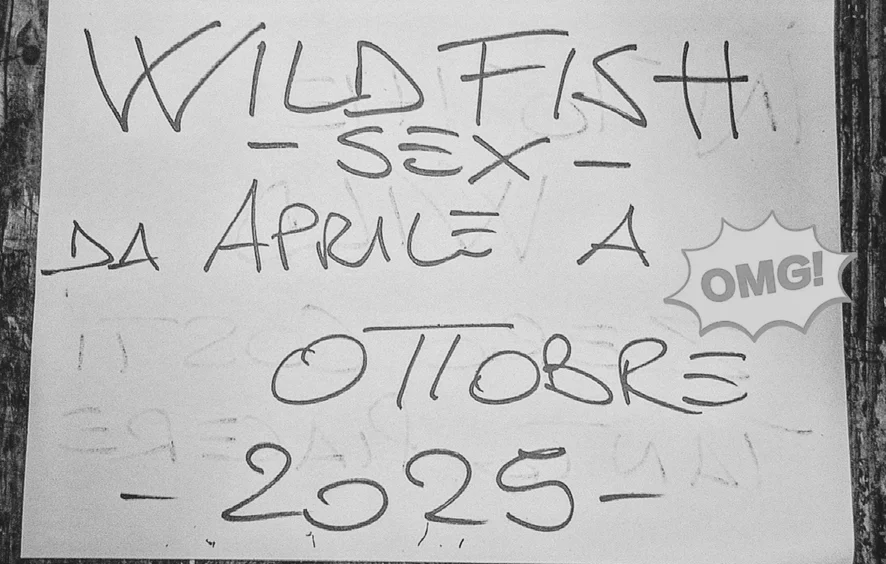 WILD FISH
- SEX -
DA APRILE A
OMG!
OTTOBRE
- 2025 -